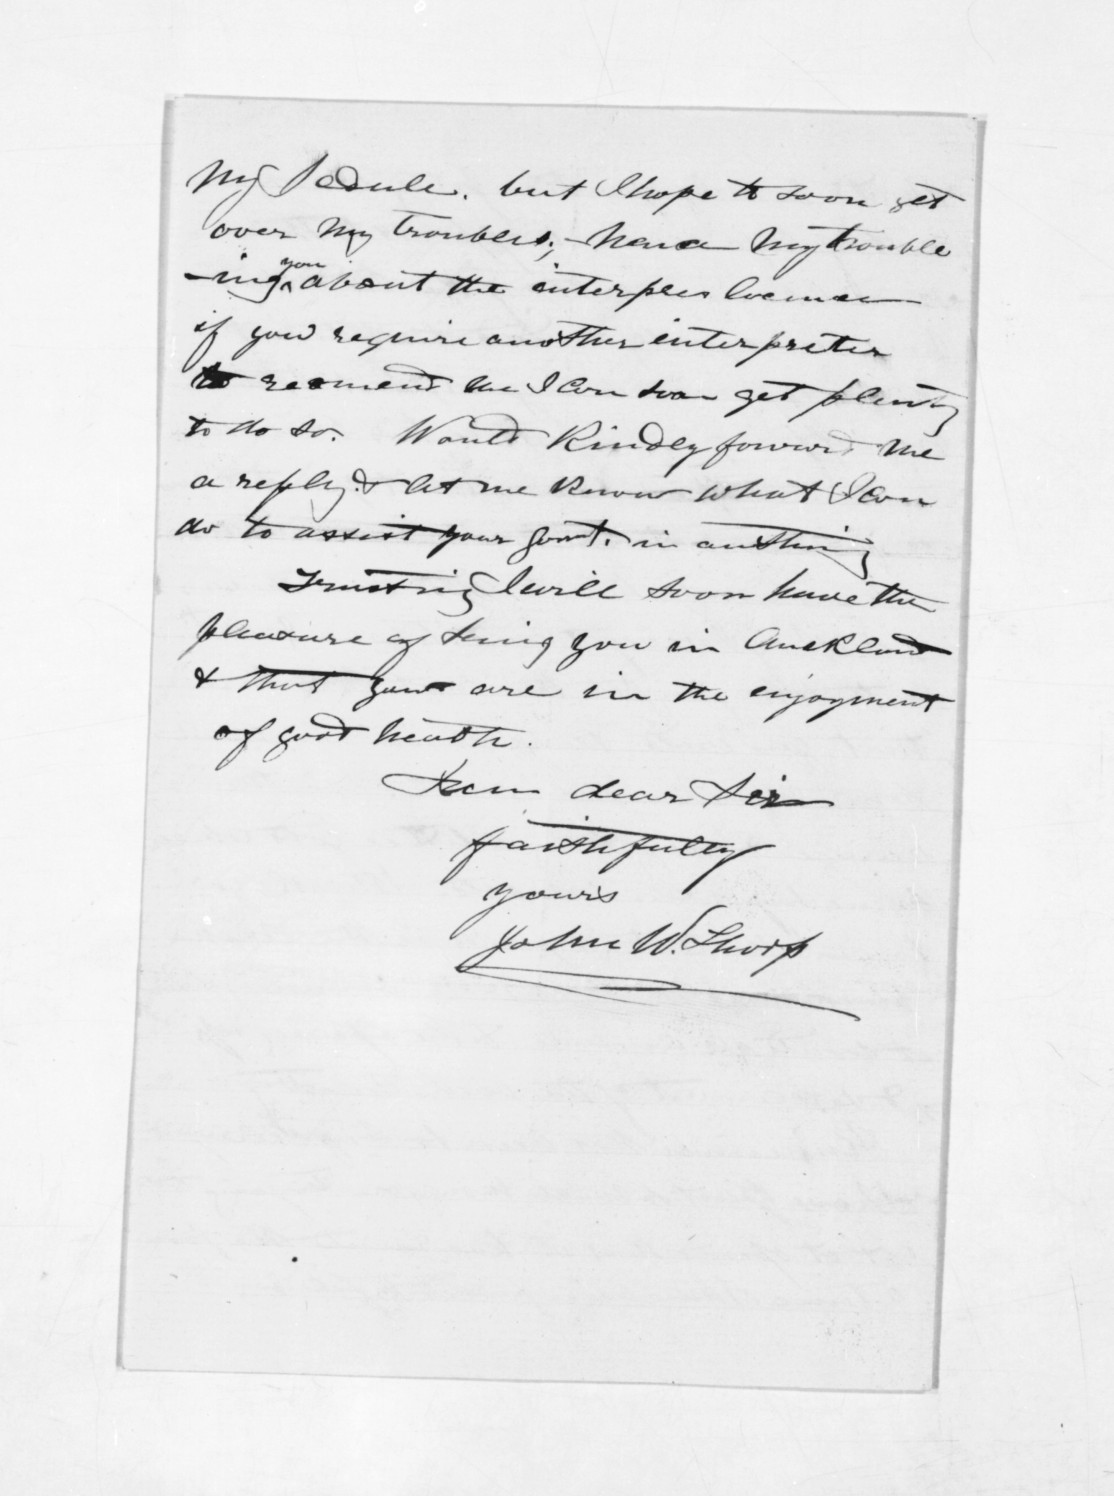 My Sedule. but I hope to soon get
over my troubles; hence my trouble
-ing you about the
if you require another interpreter
to recomend me I can soon get plenty
to do so. Would Kindly forward me
a reply. & let me know what I can
do to assist your govnt. in anything
Trusting I will soon have the
pleasure of seing you in Auckland
& that your are in the enjoyment
of good heath.
I am dear Sir
faithfully
yours
John W. Thorp